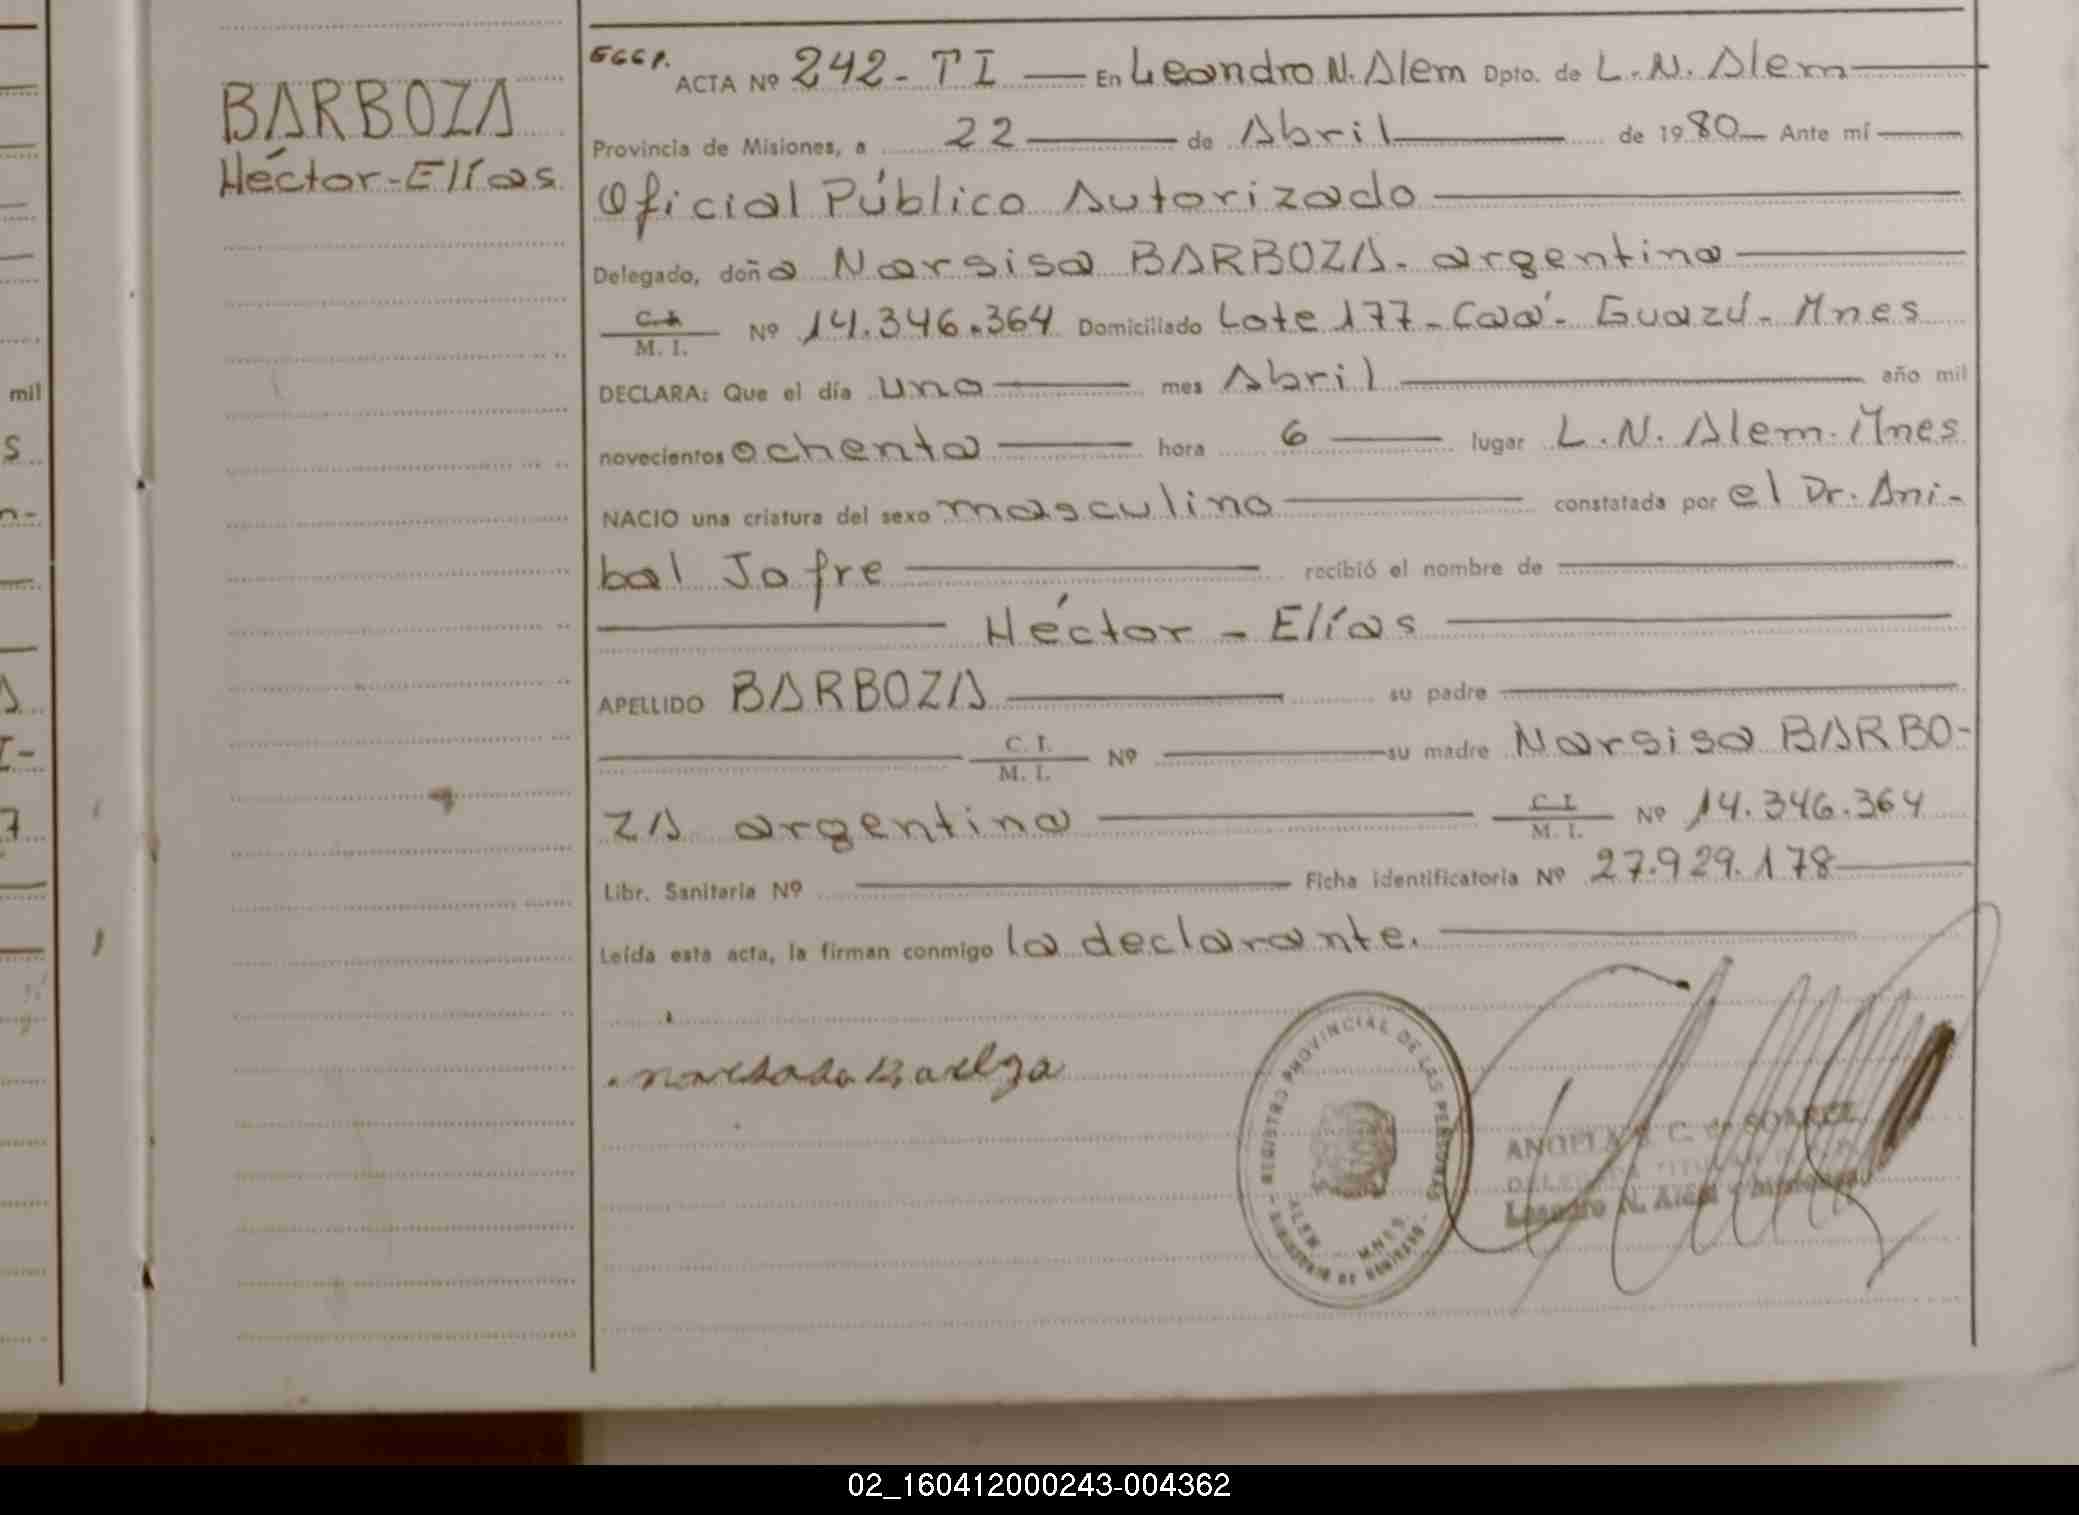 BARBOZA
Héctor-Elías
ACTA Nº 242-TI En Leandro N. Alem Dpto. de L.N. Alem
Provincia de Misiones, a 22 de Abril de 1980 Ante mí
Oficial Público Autorizado
Delegado, doña Narsisa BARBOZA. argentina
C.I. M. I. Nº 14.346.364 Domiciliado Lote 177-Caá-Guazú-Mnes
DECLARA: Que el día uno mes Abril año mil
novecientos ochenta hora 6 lugar L.N. Alem-Mnes
NACIO una criatura del sexo masculino constatada por el Dr. Ani-
bal Jofre recibió el nombre de
Héctor - Elías
APELLIDO BARBOZA su padre
C. I. M. I. Nº su madre Narsisa BARBO-
ZA argentina C.I. M. I. Nº 14.346.364
Libr. Sanitaria Nº Ficha identificatoria Nº 27.929.178
Leída esta acta, la firman conmigo la declarante.
REGISTRO PROVINCIAL DE LAS PERSONAS
ALEM MNES.
MINISTERIO DE GOBIERNO
C. de SOAREZ
Leandro N. Alem
mil
02_160412000243-004362